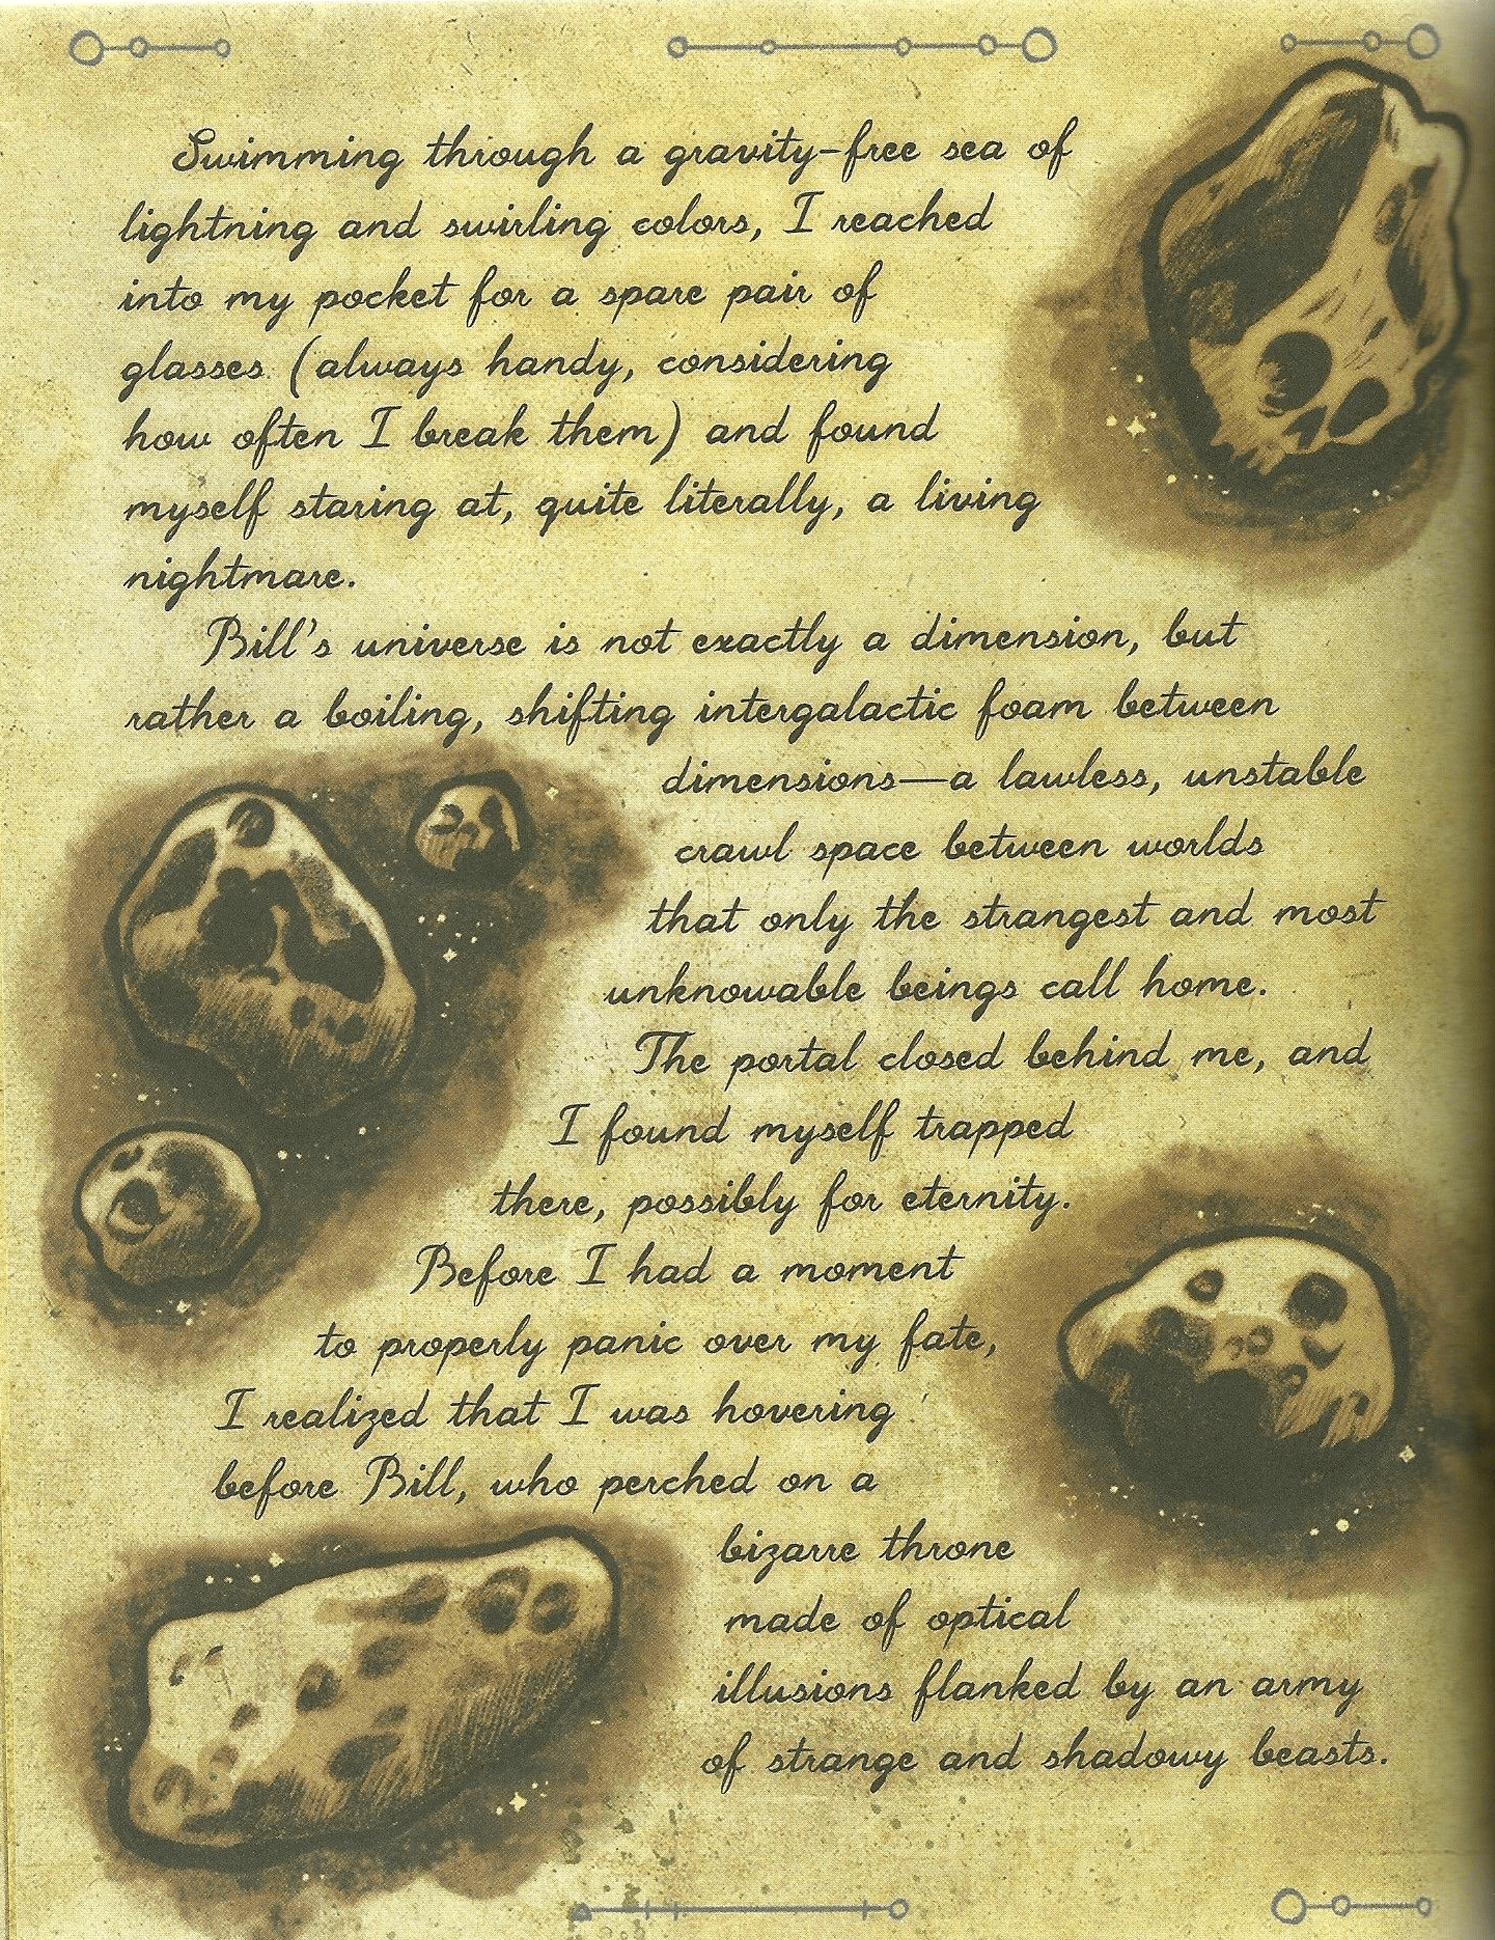 Swimming through a gravity-free sea of
lightning and swirling colors, I reached
into my pocket for a spare pair of
glasses (always handy, considering
how often I break them) and found
myself staring at, quite literally, a living
nightmare.
Bill's universe is not exactly a dimension, but
rather a boiling, shifting intergalactic foam between
dimensions—a lawless, unstable
crawl space between worlds
that only the strangest and most
unknowable beings call home.
The portal closed behind me, and
I found myself trapped
there, possibly for eternity.
Before I had a moment
to properly panic over my fate,
I realized that I was hovering
before Bill, who perched on a
bizarre throne
made of optical
illusions flanked by an army
of strange and shadowy beasts.